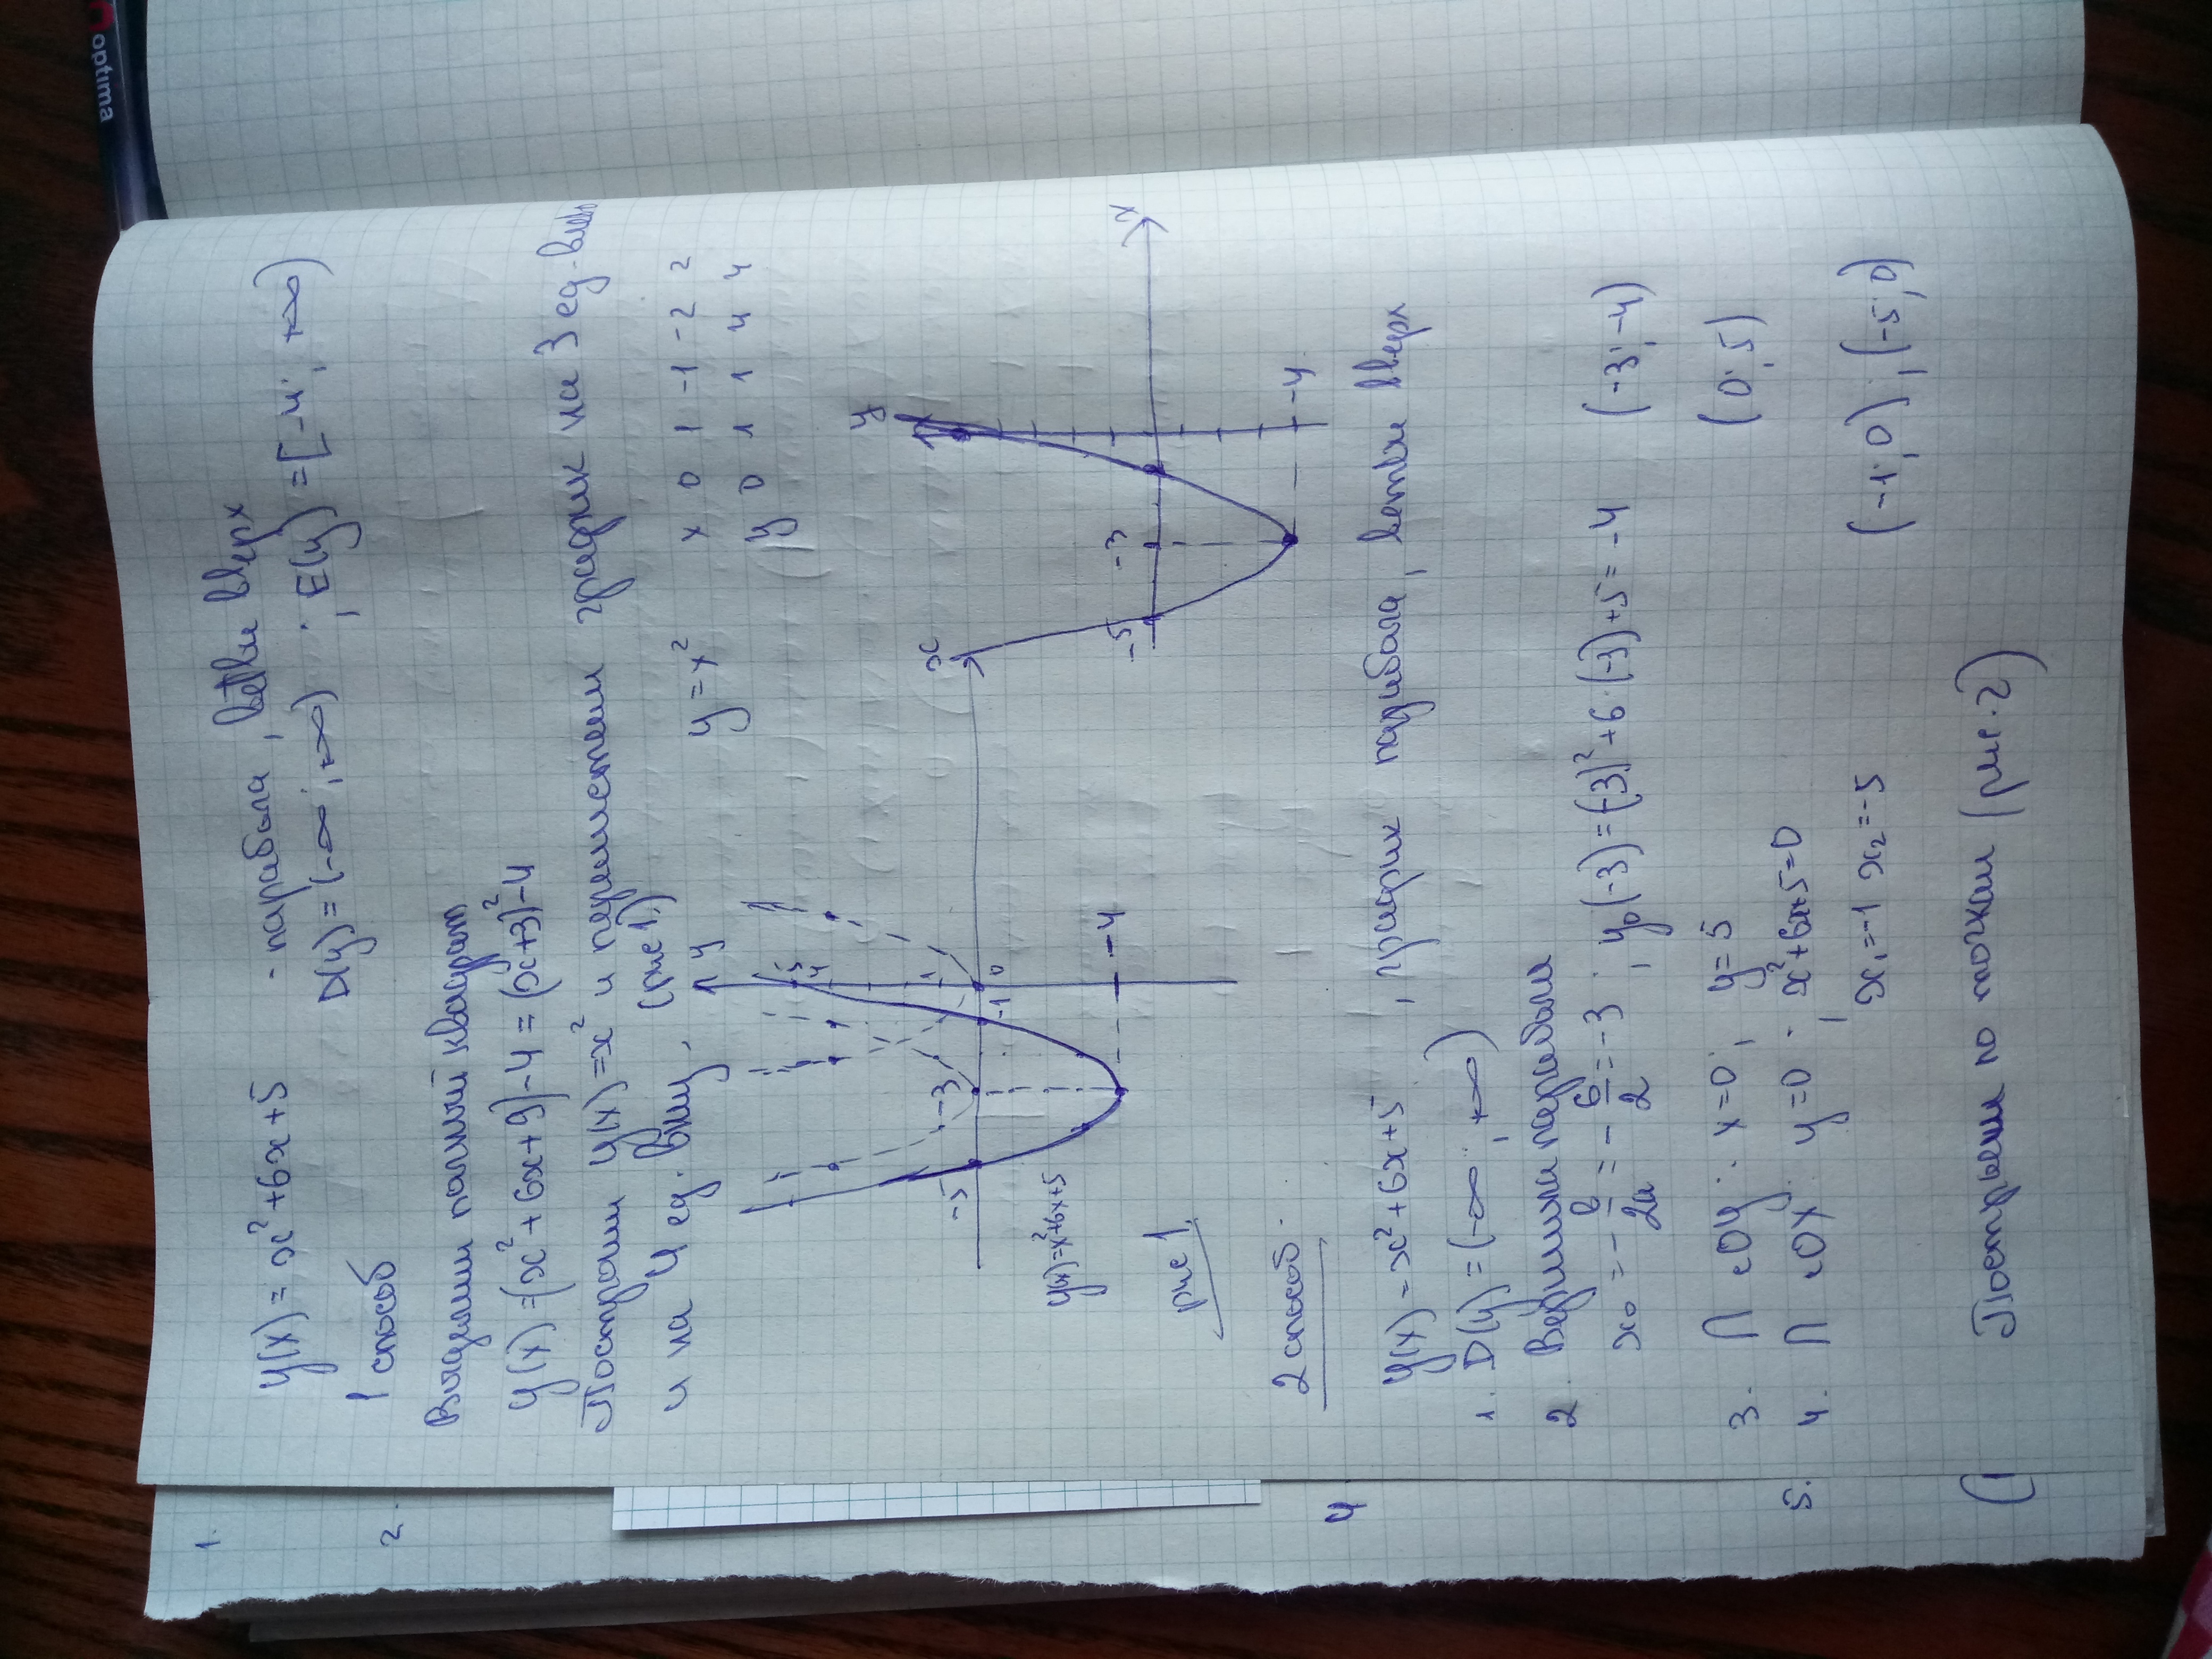 optima
y(x) = x²+6x+5 - парабола, ветви вверх
D(y)=(-∞; +∞); E(y)=[-4; +∞)
1 способ
Выделим полный квадрат
y(x)=(x²+6x+9)-4=(x+3)²-4
Построим y(x)=x² и переместим график на 3 ед. влево
и на 4 ед. вниз. (рис 1.)
y=x²
x 0 1 -1 -2 2
y 0 1 1 4 4
y
5
4
1
-5
-3
-1
0
x
-4
y(x)=x²+6x+5
рис 1.
y
x
-5
-3
-4
2 способ.
y(x)=x²+6x+5, график парабола, ветви вверх
1. D(y)=(-∞; +∞)
2. Вершина параболы
x₀=-b/2a=-6/2=-3; y₀(-3)=(-3)²+6·(-3)+5=-4 (-3;-4)
3. ∩ с OY: x=0; y=5 (0; 5)
4. ∩ с OX: y=0; x²+6x+5=0
x₁=-1 x₂=-5 (-1;0); (-5;0)
Построим по точкам (рис.2)
1.
2.
4
5.